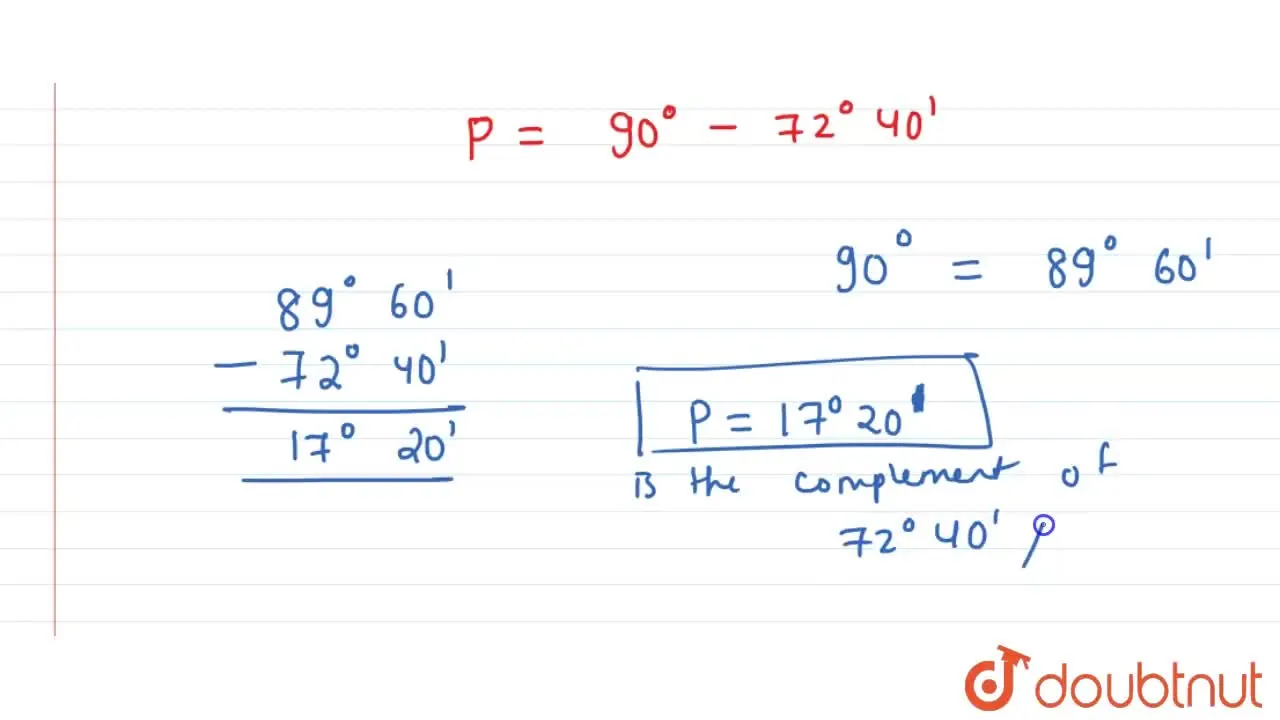 P = 90° - 72° 40'
90° = 89° 60'
89° 60'
- 72° 40'
17° 20'
P = 17° 20'
is the complement of
72° 40'
doubtnut